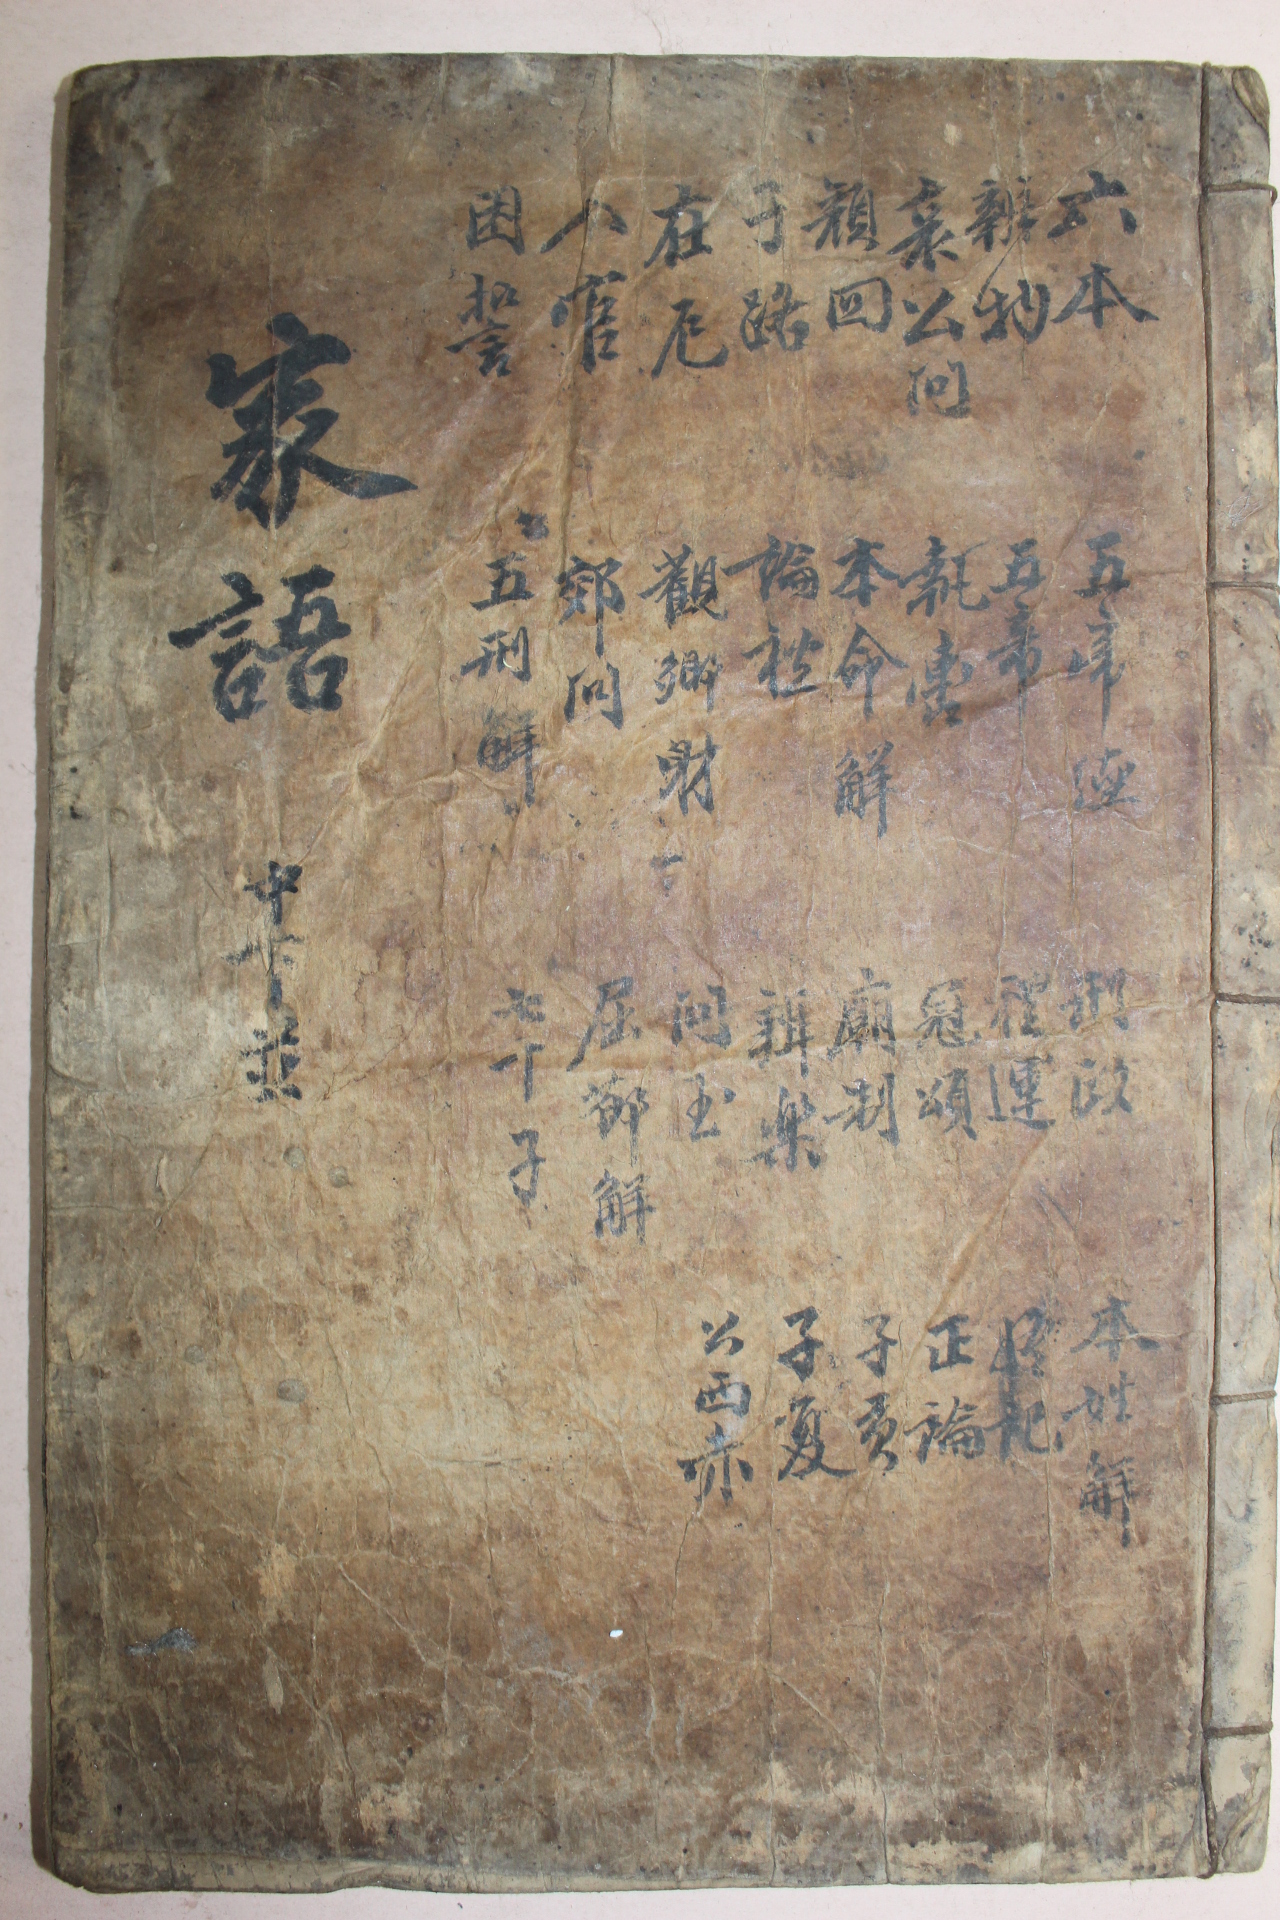 六本
辨物
哀公问
顔回
子路
在厄
入官
困誓
五帝德
五帝
執轡
本命解
論礼
觀鄉射
下
郊问
五刑解
刑政
禮運
冠頌
廟制
辨樂
问玉
屈節解
七十子
本姓解
終記
正論
子貢
子夏
公西赤
家語
中下並